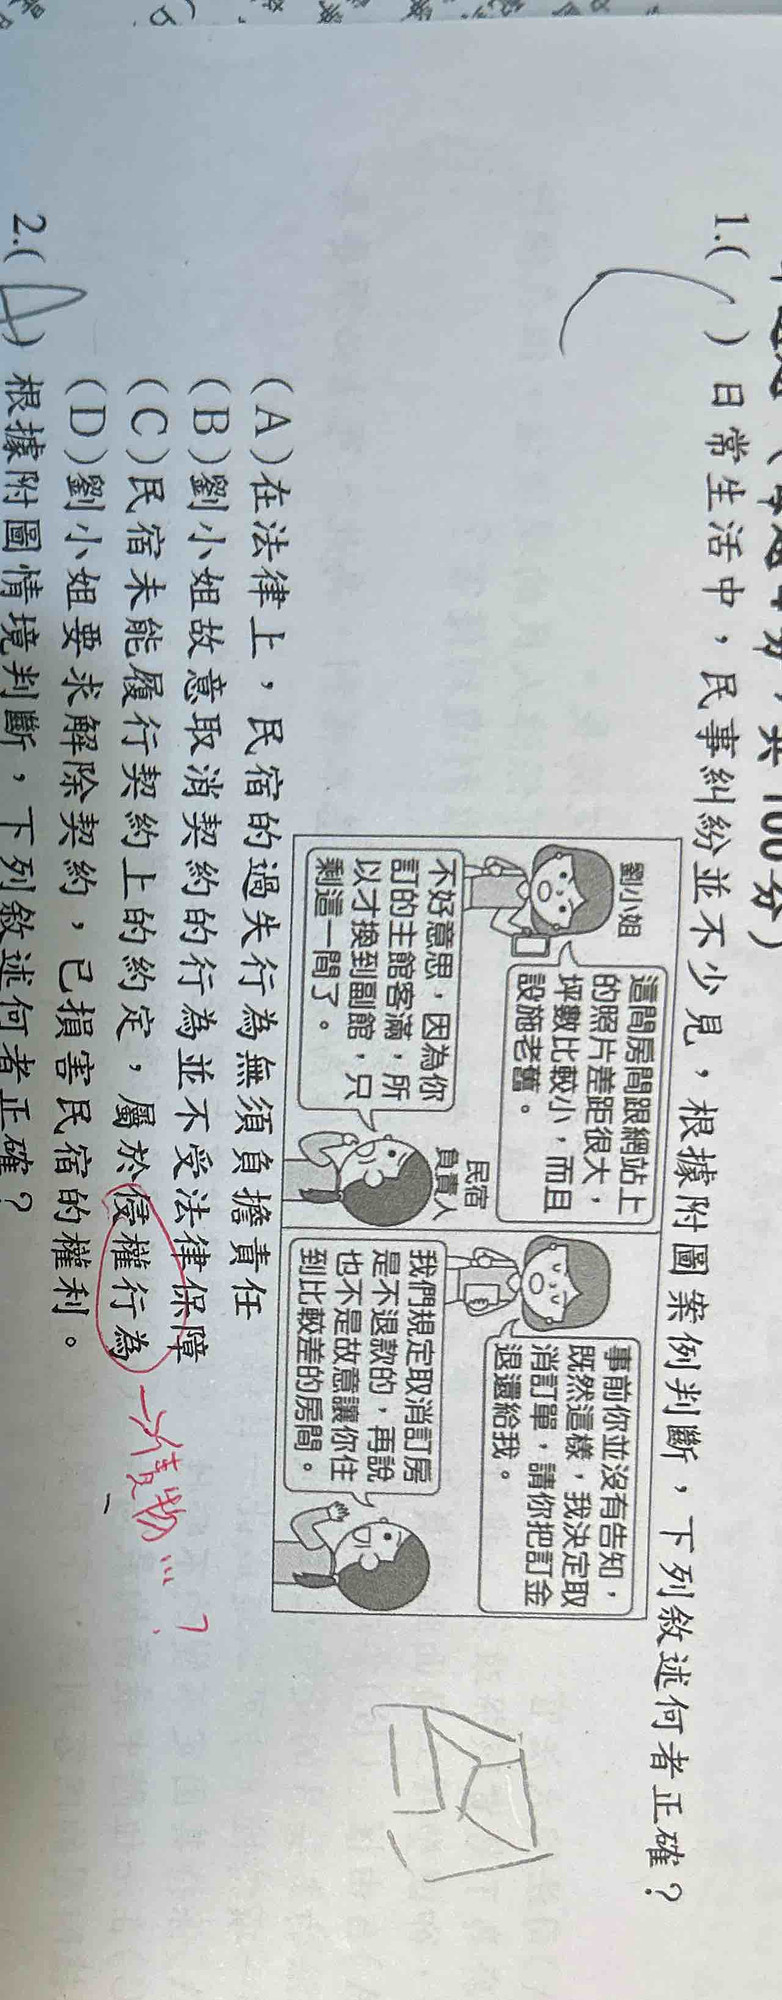 共100分)
1.( )日常生活中，民事糾紛並不少見，根據附圖案例判斷，下列敘述何者正確？
劉小姐
這間房間跟網站上
的照片差距很大，
坪數比較小，而且
設施老舊。
民宿
負責人
不好意思，因為你
訂的主館客滿，所
以才換到副館，只
剩這一間了。
事前你並沒有告知，
既然這樣，我決定取
消訂單，請你把訂金
退還給我。
我們規定取消訂房
是不退款的，再說
也不是故意讓你住
到比較差的房間。
(A)在法律上，民宿的過失行為無須負擔責任
(B)劉小姐故意取消契約的行為並不受法律保障
(C)民宿未能履行契約上的約定，屬於侵權行為
(D)劉小姐要求解除契約，已損害民宿的權利。
2.( )根據附圖情境判斷，下列敘述何者正確？